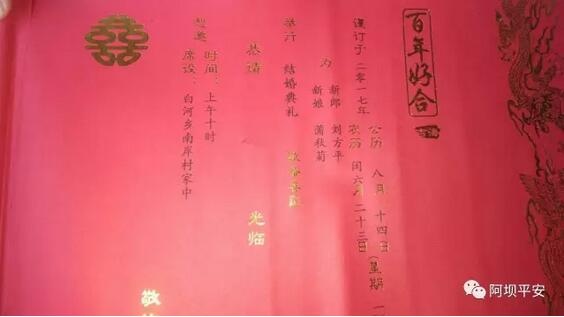 百年好合
谨订于 二零一七年 公历 八月 十四日
农历 闰六月 二十三日 (星期 一
为 新郎 刘方平
新娘 蒲秋菊
举行 结婚典礼
敬备喜酌
恭请 光临
恕邀
时间：上午十时
席设：白河乡南岸村家中
敬
囍
阿坝平安